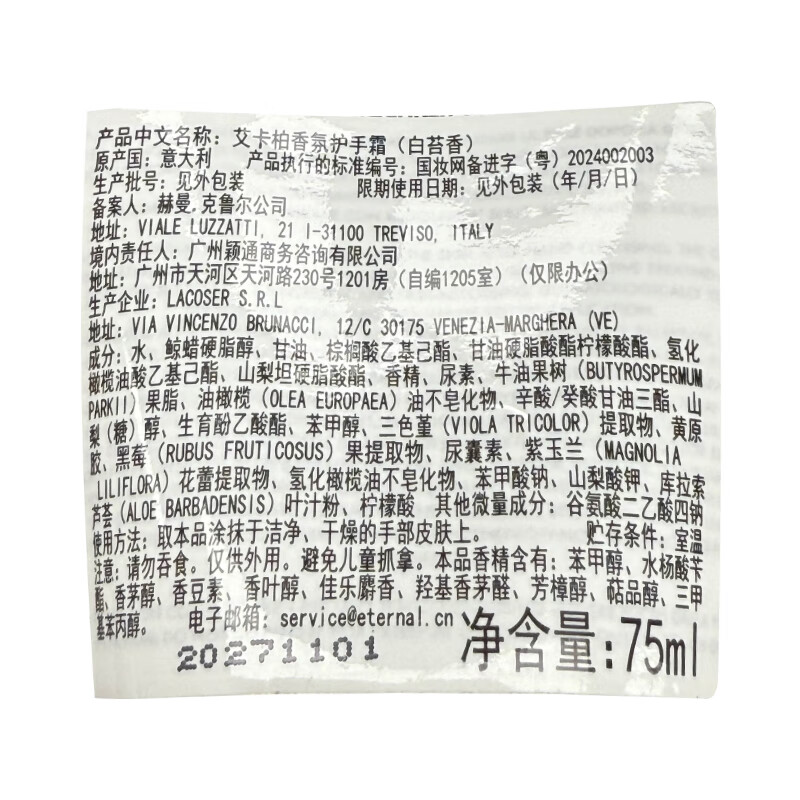 产品中文名称: 艾卡柏香氛护手霜（白苔香）
原产国: 意大利 产品执行的标准编号: 国妆网备进字（粤）2024002003
生产批号: 见外包装 限期使用日期: 见外包装（年/月/日）
备案人: 赫曼.克鲁尔公司
地址: VIALE LUZZATTI, 21 I-31100 TREVISO, ITALY
境内责任人: 广州颖通商务咨询有限公司
地址: 广州市天河区天河路230号1201房（自编1205室）（仅限办公）
生产企业: LACOSER S.R.L
地址: VIA VINCENZO BRUNACCI, 12/C 30175 VENEZIA-MARGHERA (VE)
成分: 水、鲸蜡硬脂醇、甘油、棕榈酸乙基己酯、甘油硬脂酸酯柠檬酸酯、氢化
橄榄油酸乙基己酯、山梨坦硬脂酸酯、香精、尿素、牛油果树（BUTYROSPERMUM
PARKII）果脂、油橄榄（OLEA EUROPAEA）油不皂化物、辛酸/癸酸甘油三酯、山
梨（糖）醇、生育酚乙酸酯、苯甲醇、三色堇（VIOLA TRICOLOR）提取物、黄原
胶、黑莓（RUBUS FRUTICOSUS）果提取物、尿囊素、紫玉兰（MAGNOLIA
LILIFLORA）花蕾提取物、氢化橄榄油不皂化物、苯甲酸钠、山梨酸钾、库拉索
芦荟（ALOE BARBADENSIS）叶汁粉、柠檬酸 其他微量成分: 谷氨酸二乙酸四钠
使用方法: 取本品涂抹于洁净、干燥的手部皮肤上。 贮存条件: 室温
注意: 请勿吞食。仅供外用。避免儿童抓拿。本品香精含有: 苯甲醇、水杨酸苄
酯、香茅醇、香豆素、香叶醇、佳乐麝香、羟基香茅醛、芳樟醇、萜品醇、三甲
基苯丙醇。 电子邮箱: service@eternal.cn 净含量: 75ml
20271101